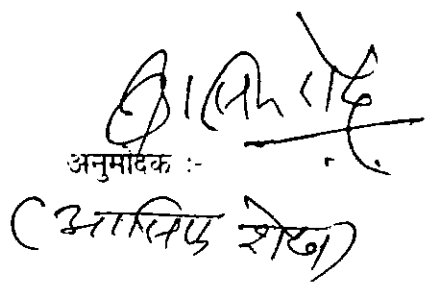 अनुमोदक :-
(आसिफ शेख)